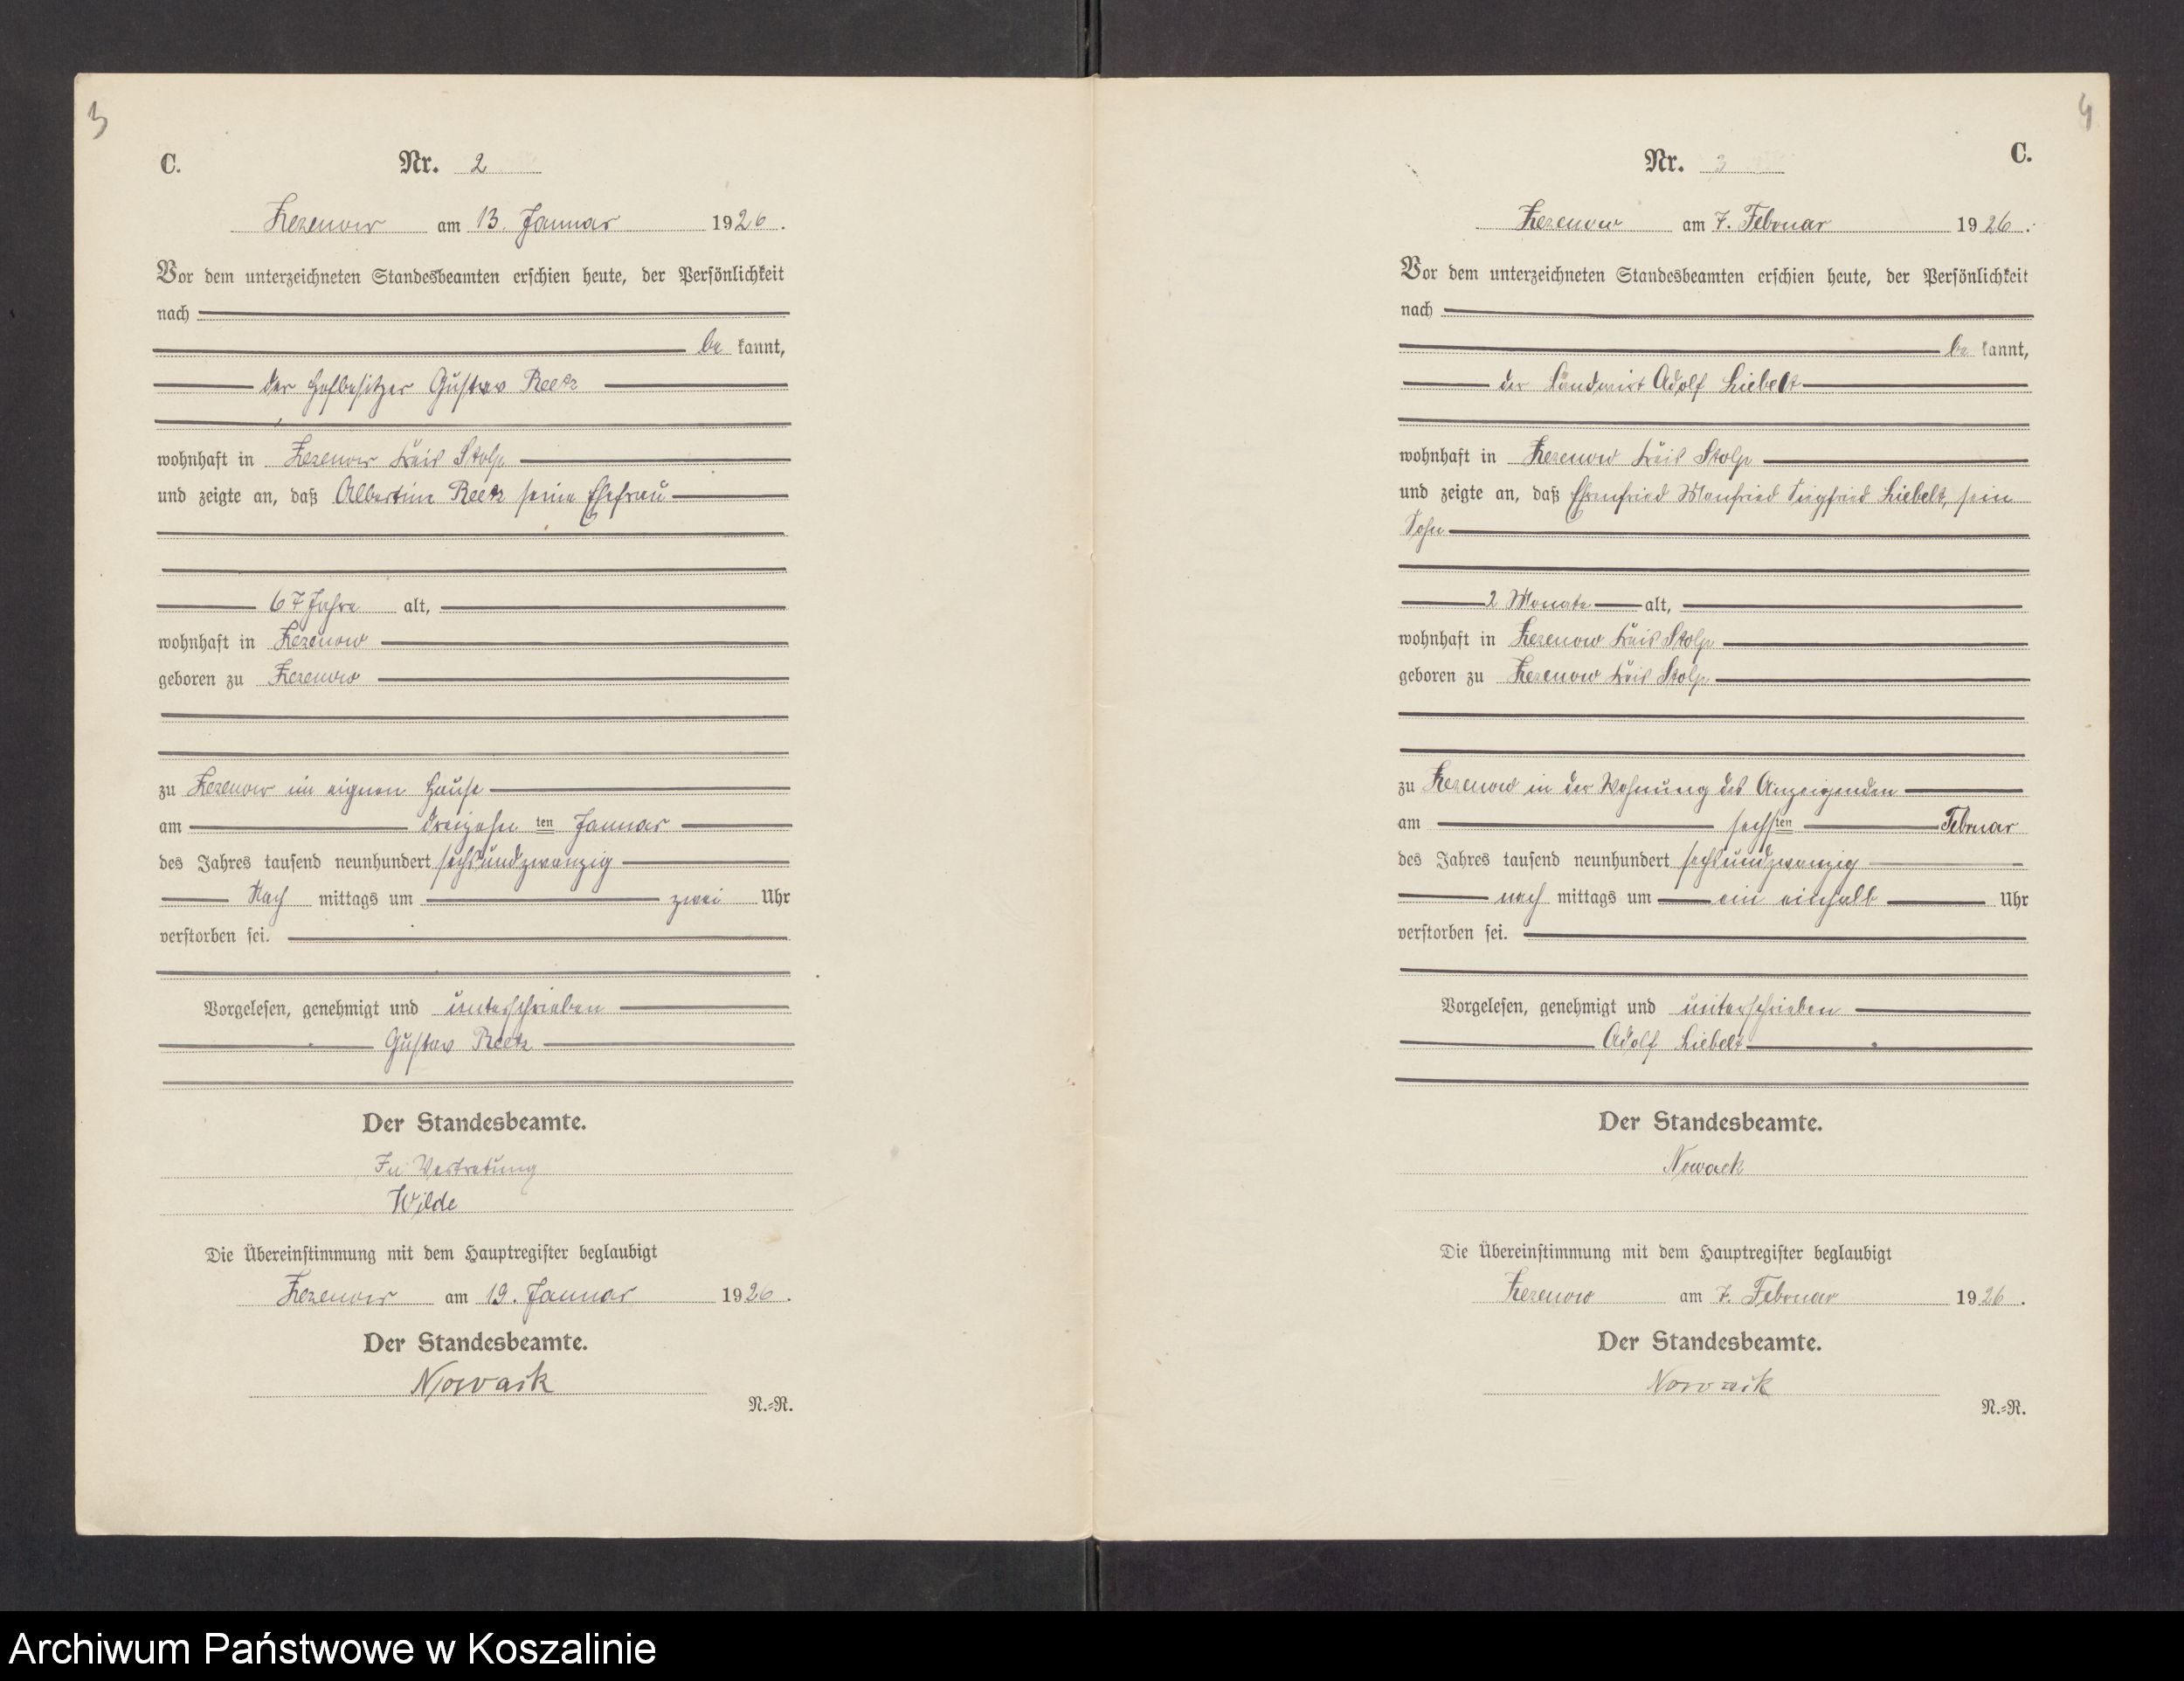 3
C. Nr. 2
Zezenow am 13. Januar 1926.
Vor dem unterzeichneten Standesbeamten erschien heute, der Persönlichkeit
nach
be kannt,
der Hofbesitzer Gustav Reetz
wohnhaft in Zezenow Kreis Stolp
und zeigte an, daß Albertine Reetz seine Ehefrau
67 Jahre alt,
wohnhaft in Zezenow
geboren zu Zezenow
zu Zezenow im eignen Hause
am dreizehn ten Januar
des Jahres tausend neunhundert sechsundzwanzig
Nach mittags um zwei Uhr
verstorben sei.
Vorgelesen, genehmigt und unterschrieben
Gustav Reetz
Der Standesbeamte.
In Vertretung
Wilde
Die Übereinstimmung mit dem Hauptregister beglaubigt
Zezenow am 19. Januar 1926.
Der Standesbeamte.
Nowack
N.=R.
4
Nr. 3 C.
Zezenow am 7. Februar 1926.
Vor dem unterzeichneten Standesbeamten erschien heute, der Persönlichkeit
nach
be kannt,
der Landwirt Adolf Liebelt
wohnhaft in Zezenow Kreis Stolp
und zeigte an, daß Ehrenfried Manfried Siegfried Liebelt, sein
Sohn
2 Monate alt,
wohnhaft in Zezenow Kreis Stolp
geboren zu Zezenow Kreis Stolp
zu Zezenow in der Wohnung des Anzeigenden
am sechsten Februar
des Jahres tausend neunhundert sechsundzwanzig
nach mittags um ein einhalb Uhr
verstorben sei.
Vorgelesen, genehmigt und unterschrieben
Adolf Liebelt
Der Standesbeamte.
Nowack
Die Übereinstimmung mit dem Hauptregister beglaubigt
Zezenow am 7. Februar 1926.
Der Standesbeamte.
Nowack
N.=R.
Archiwum Państwowe w Koszalinie